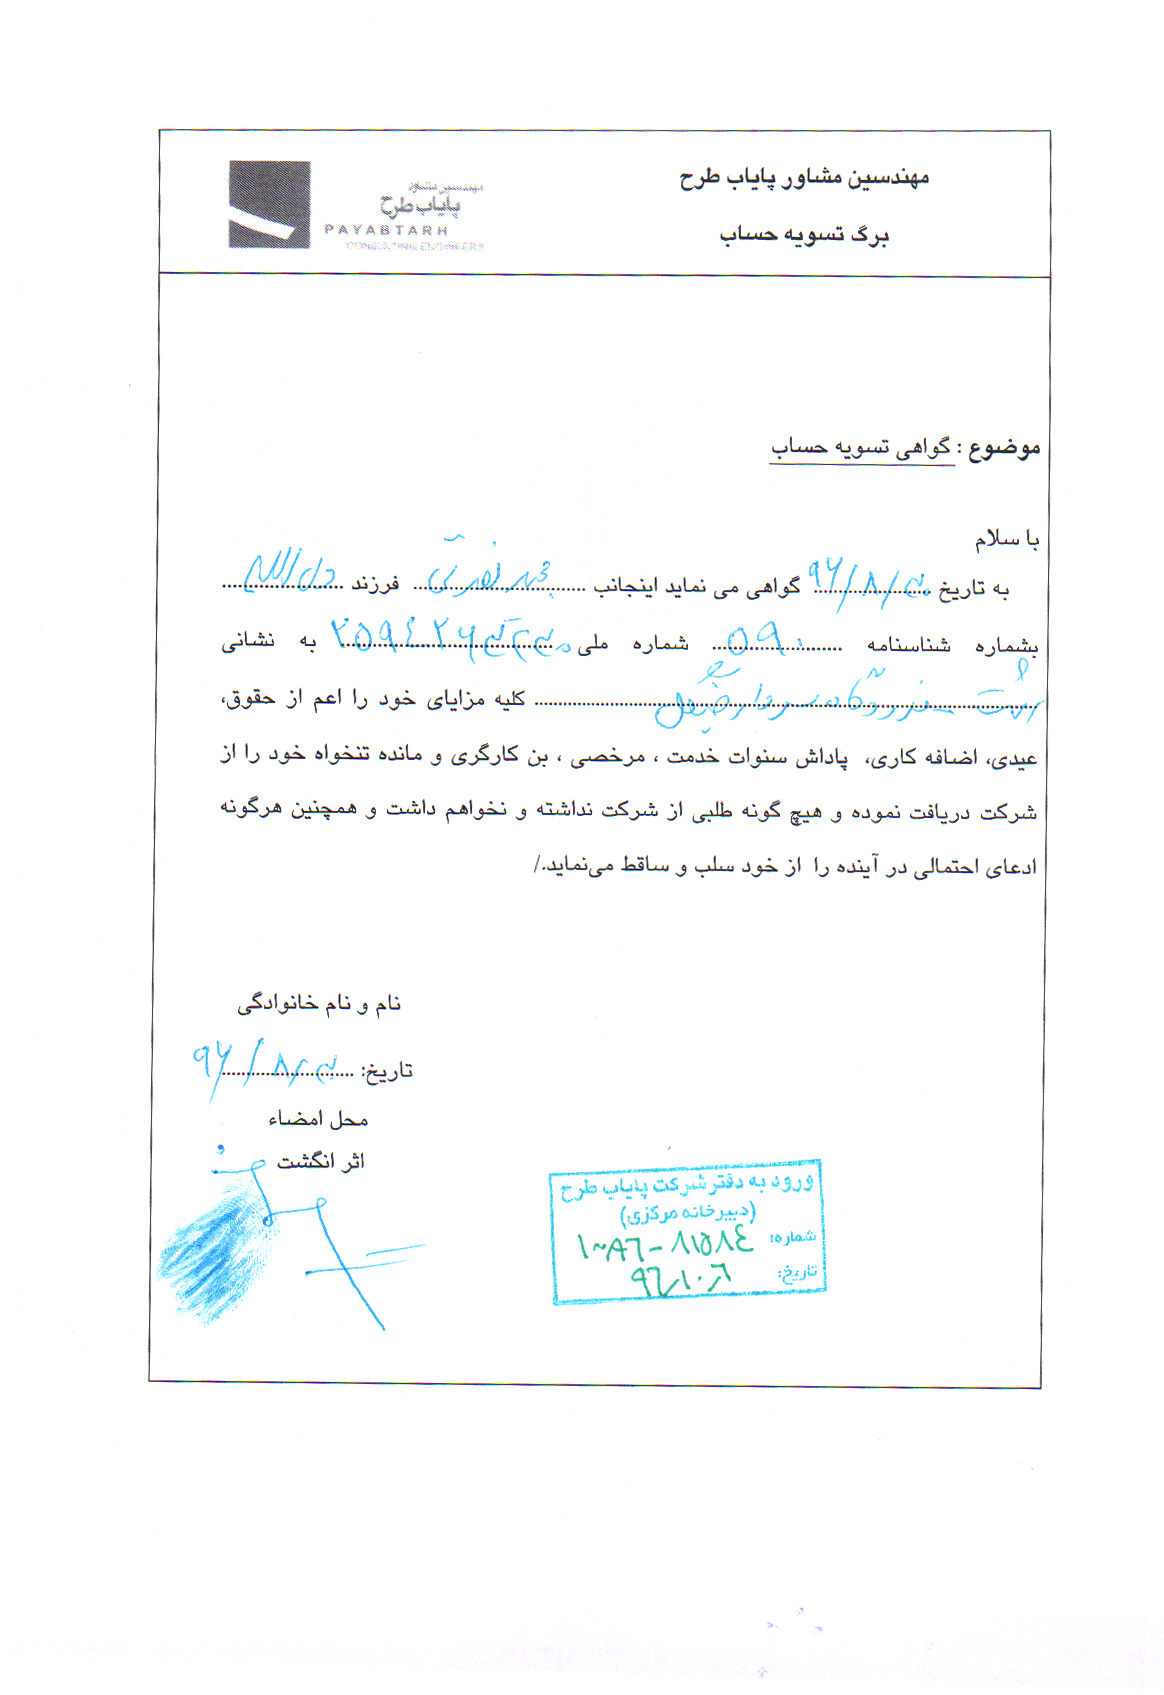 مهندسین مشاور پایاب طرح
برگ تسویه حساب
مهندسین مشاور
پایاب طرح
PAYABTARH
CONSULTING ENGINEERS
موضوع : گواهی تسویه حساب
با سلام
به تاریخ ۹۶/۸/۳۰ گواهی می نماید اینجانب فرزند
بشماره شناسنامه ۵۹۰ شماره ملی به نشانی
کلیه مزایای خود را اعم از حقوق،
عیدی، اضافه کاری، پاداش سنوات خدمت ، مرخصی ، بن کارگری و مانده تنخواه خود را از
شرکت دریافت نموده و هیچ گونه طلبی از شرکت نداشته و نخواهم داشت و همچنین هرگونه
ادعای احتمالی در آینده را از خود سلب و ساقط می‌نماید./
نام و نام خانوادگی
تاریخ: ۹۶/۸/۳۰
محل امضاء
اثر انگشت
ورود به دفتر شرکت پایاب طرح
(دبیرخانه مرکزی)
شماره:
تاریخ: ۹۶/۱۰/۶